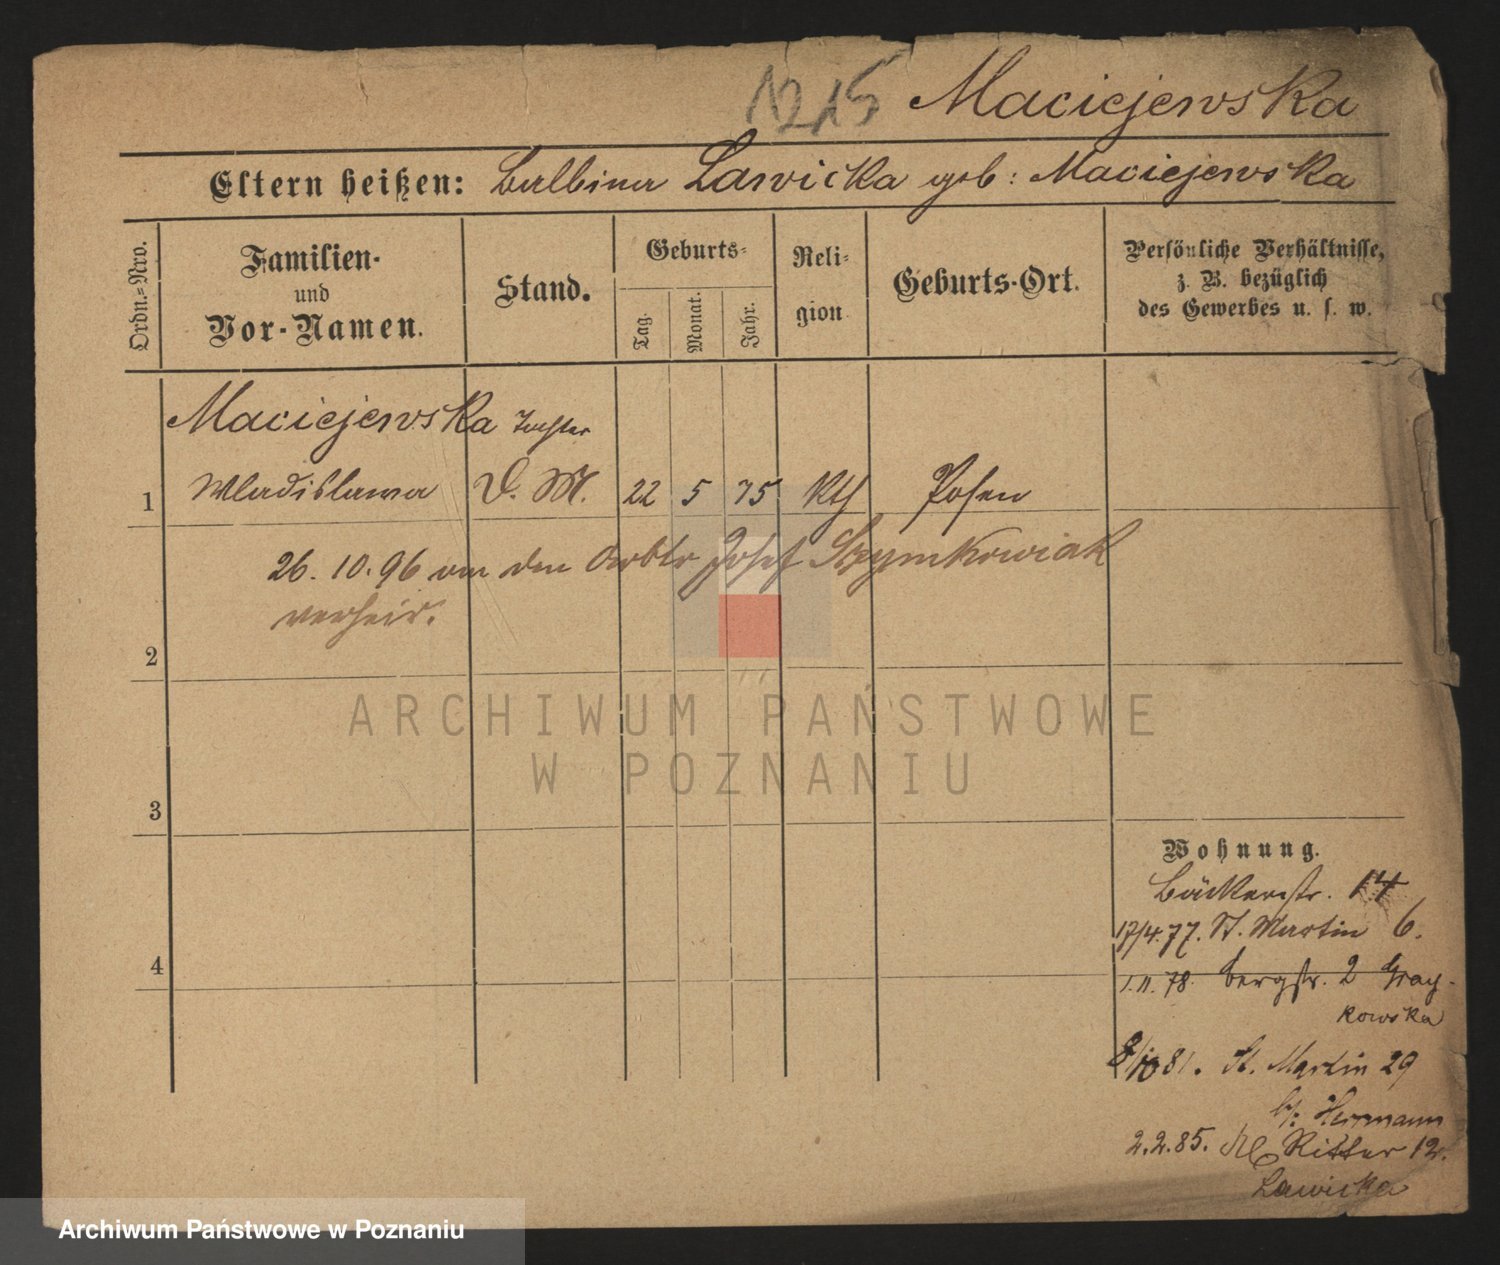 1215 Maciejewska
Eltern heißen: Balbina Lawicka geb: Maciejewska
Ordn.-Nro.
Familien-
und
Vor-Namen.
Stand.
Geburts-
Tag.
Monat.
Jahr.
Reli-
gion
Geburts-Ort.
Persönliche Verhältnisse,
z. B. bezüglich
des Gewerbes u. s. w.
Maciejewska Tochter
1 Wladislawa D. M. 22 5 75 Kth Posen
26. 10. 96 an den Arbtr Josef Szymkowiak
verheir.
2
3
4
Wohnung.
Bäckerstr. 14
17/4.77. St. Martin 6.
1.11.78. Bergstr. 2 Gray-
kowska
8/10 81. St. Martin 29
b/: Herrmann
2.2.85. Kl Ritter 12.
Lawicka
ARCHIWUM PAŃSTWOWE
W POZNANIU
Archiwum Państwowe w Poznaniu